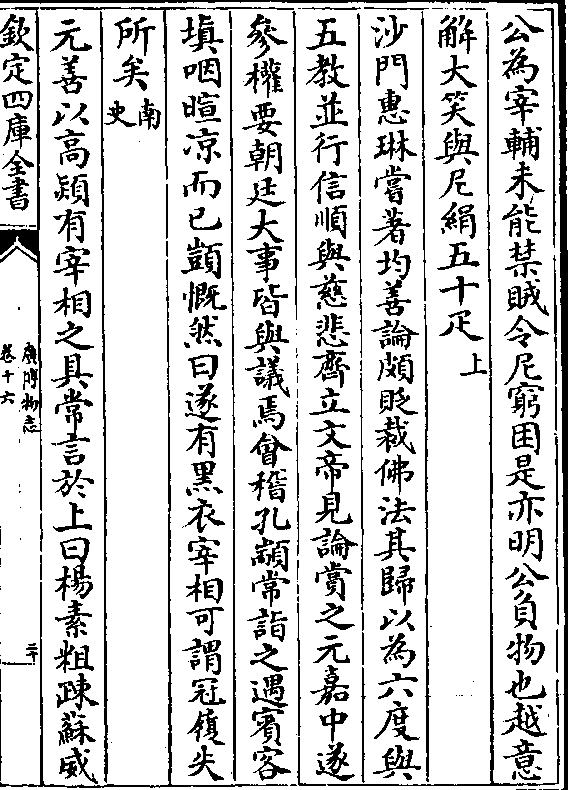 公為宰輔未能禁賊令尼窮困是亦明公負物也越意
解大笑與尼絹五十疋上
沙門惠琳嘗著均善論頗貶裁佛法其歸以為六度與
五教並行信順與慈悲齊立文帝見論賞之元嘉中遂
參權要朝廷大事皆與議焉會稽孔顗常詣之遇賓客
填咽暄凉而已顗慨然曰遂有黑衣宰相可謂冠履失
所矣南史
元善以高熲有宰相之具常言於上曰楊素粗疎蘇威
欽定四庫全書
廣博物志
卷十六
二十